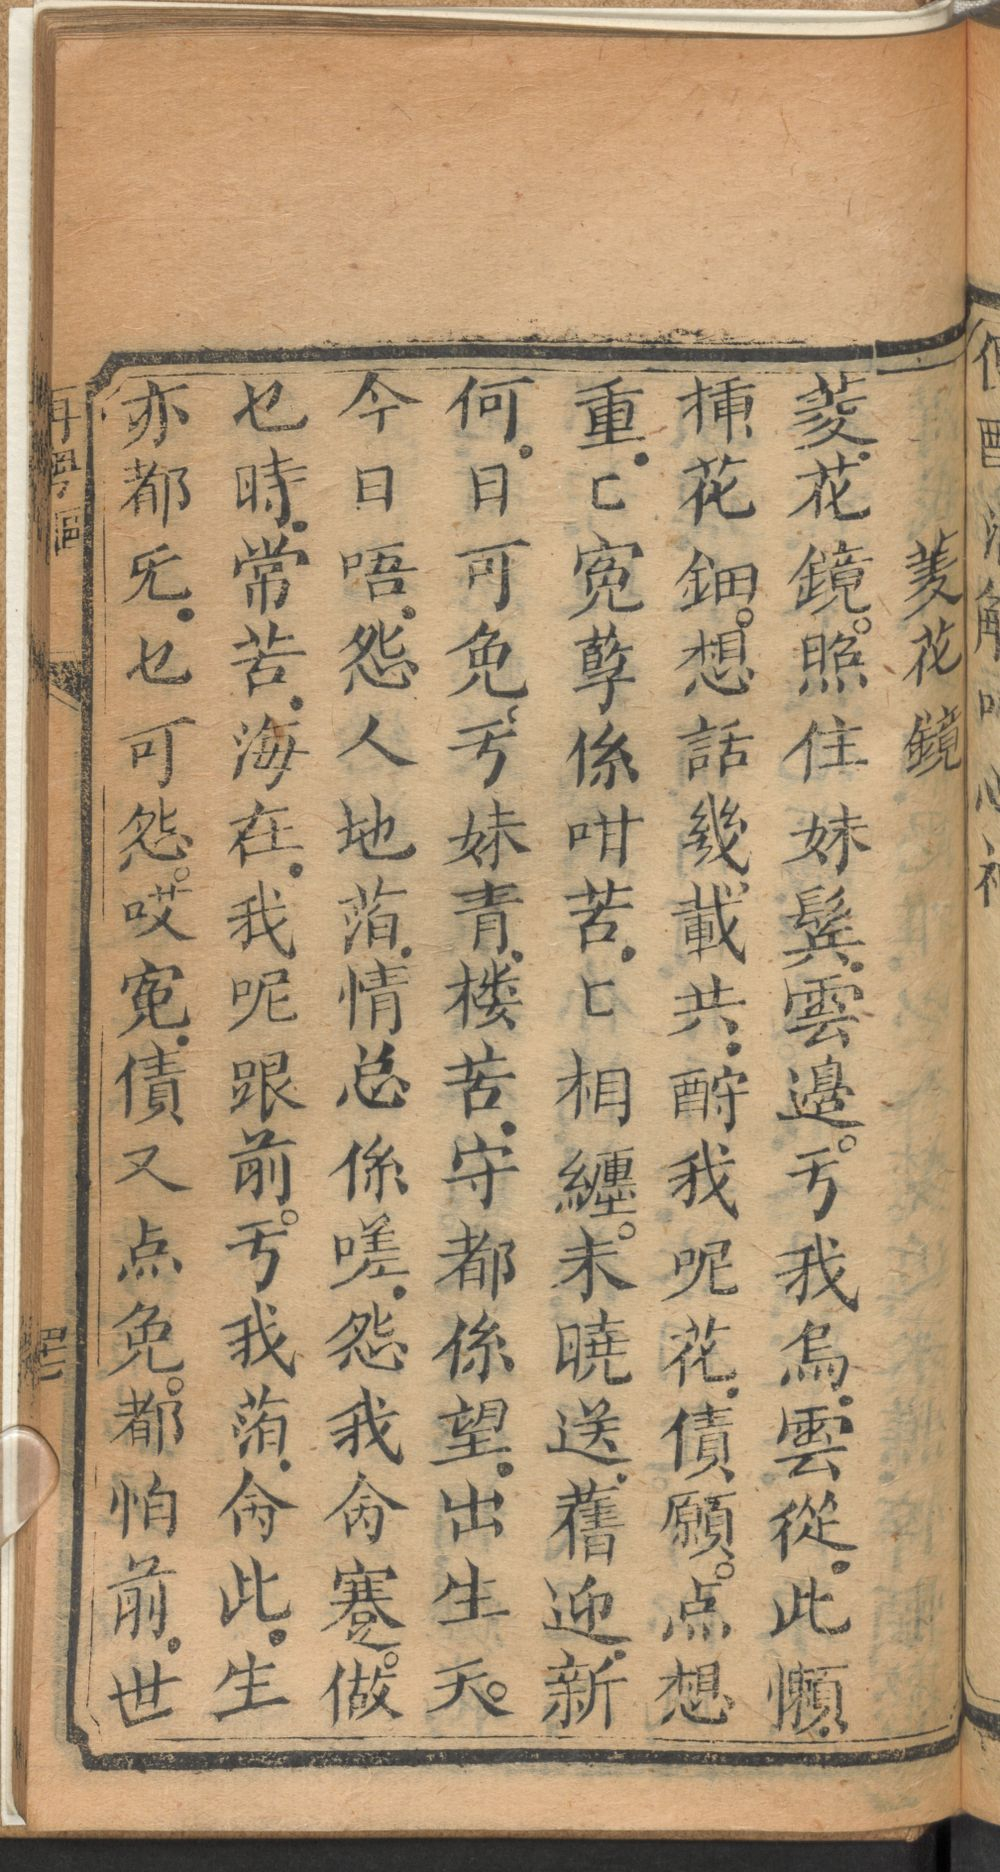 菱花鏡
菱花鏡。照住妹鬓雲邊。亐我烏雲從此懶
揷花鈿。想話幾載共酧我呢花債願。点想
重匕寃孽係咁苦匕相纏。未曉送舊迎新
何日可免亐妹青楼苦守都係望出生天。
今日唔怨人地萡情总係嗟怨我命蹇。做
乜時常苦海在我呢跟前。亐我萡命此生
亦都旡乜可怨。哎寃債又点免。都怕前世
再粤謳